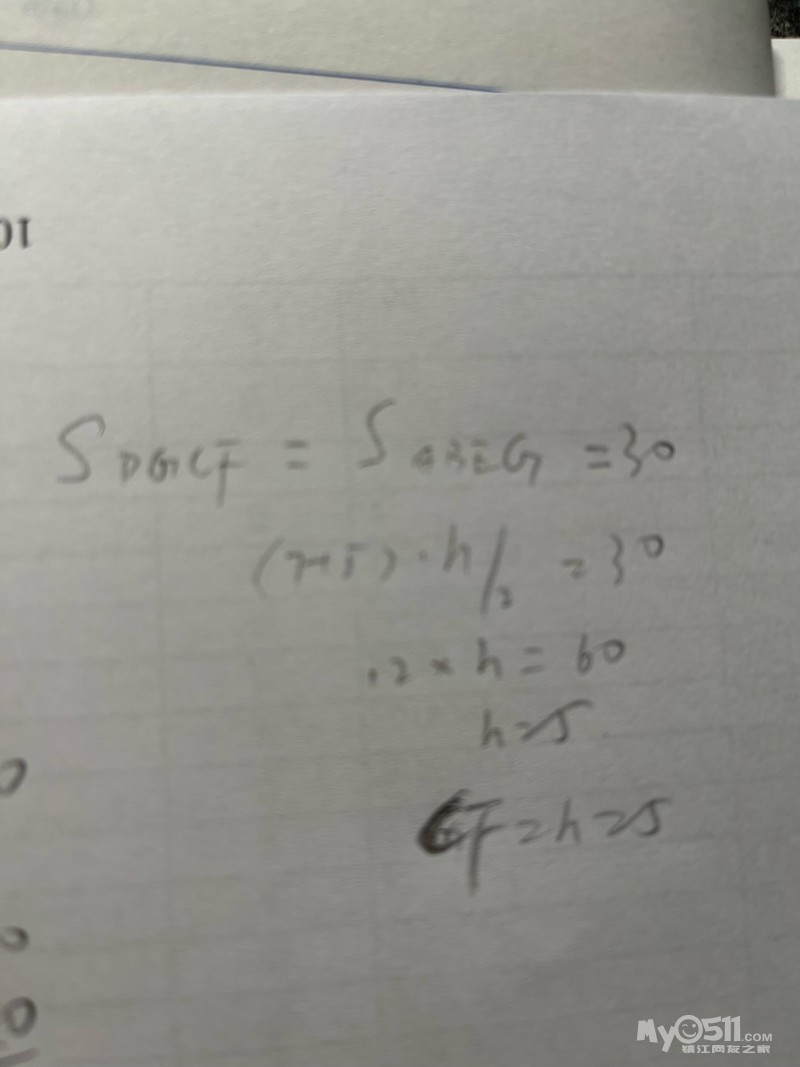 10
S DGCF = S ABEG = 30
(7+5)·h/2 = 30
12 × h = 60
h=5
CF=h=5
0
0
0
My0511.COM
镇江网友之家